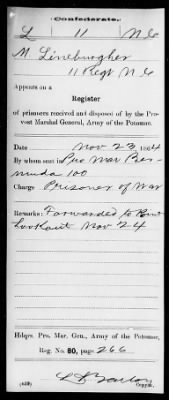 Confederate.
L 11 N C
M. Lineburgher
11 Regt N C
Appears on a
Register
of prisoners received and disposed of by the Pro-
vost Marshal General, Army of the Potomac.
Date Nov 23 1864
By whom sent in Pro Mar Ber-
muda 100
Charge Prisoner of War
Remarks: Forwarded to Point
Lookout Nov 24
Hdqrs. Pro. Mar. Gen., Army of the Potomac,
Reg. No. 80, page 266
(639)
Copyist.